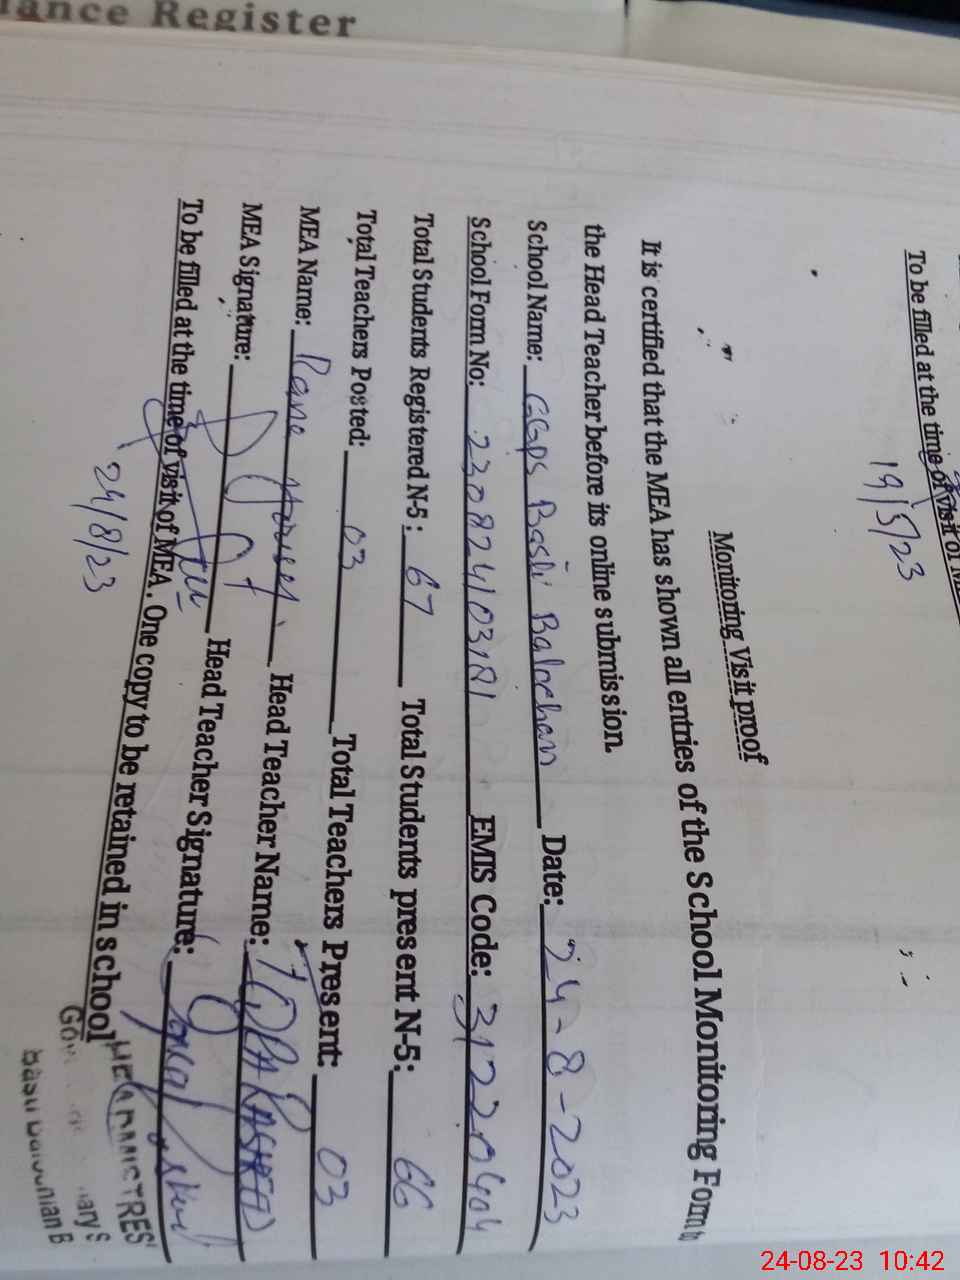 ance Register
To be filled at the time of visit of
19/5/23
Monitoring Visit proof
It is certified that the MEA has shown all entries of the School Monitoring Form to
the Head Teacher before its online submission.
School Name: GGPS Basti Balochan Date: 24-8-2023
School Form No: EMIS Code: 31220404
Total Students Registered N-5: 67 Total Students present N-5: 66
Total Teachers Posted: 03 Total Teachers Present: 03
MEA Name: Rana Head Teacher Name:
MEA Signature: Head Teacher Signature:
To be filled at the time of visit of MEA. One copy to be retained in school
24/8/23
HEADMISTRES
24-08-23 10:42